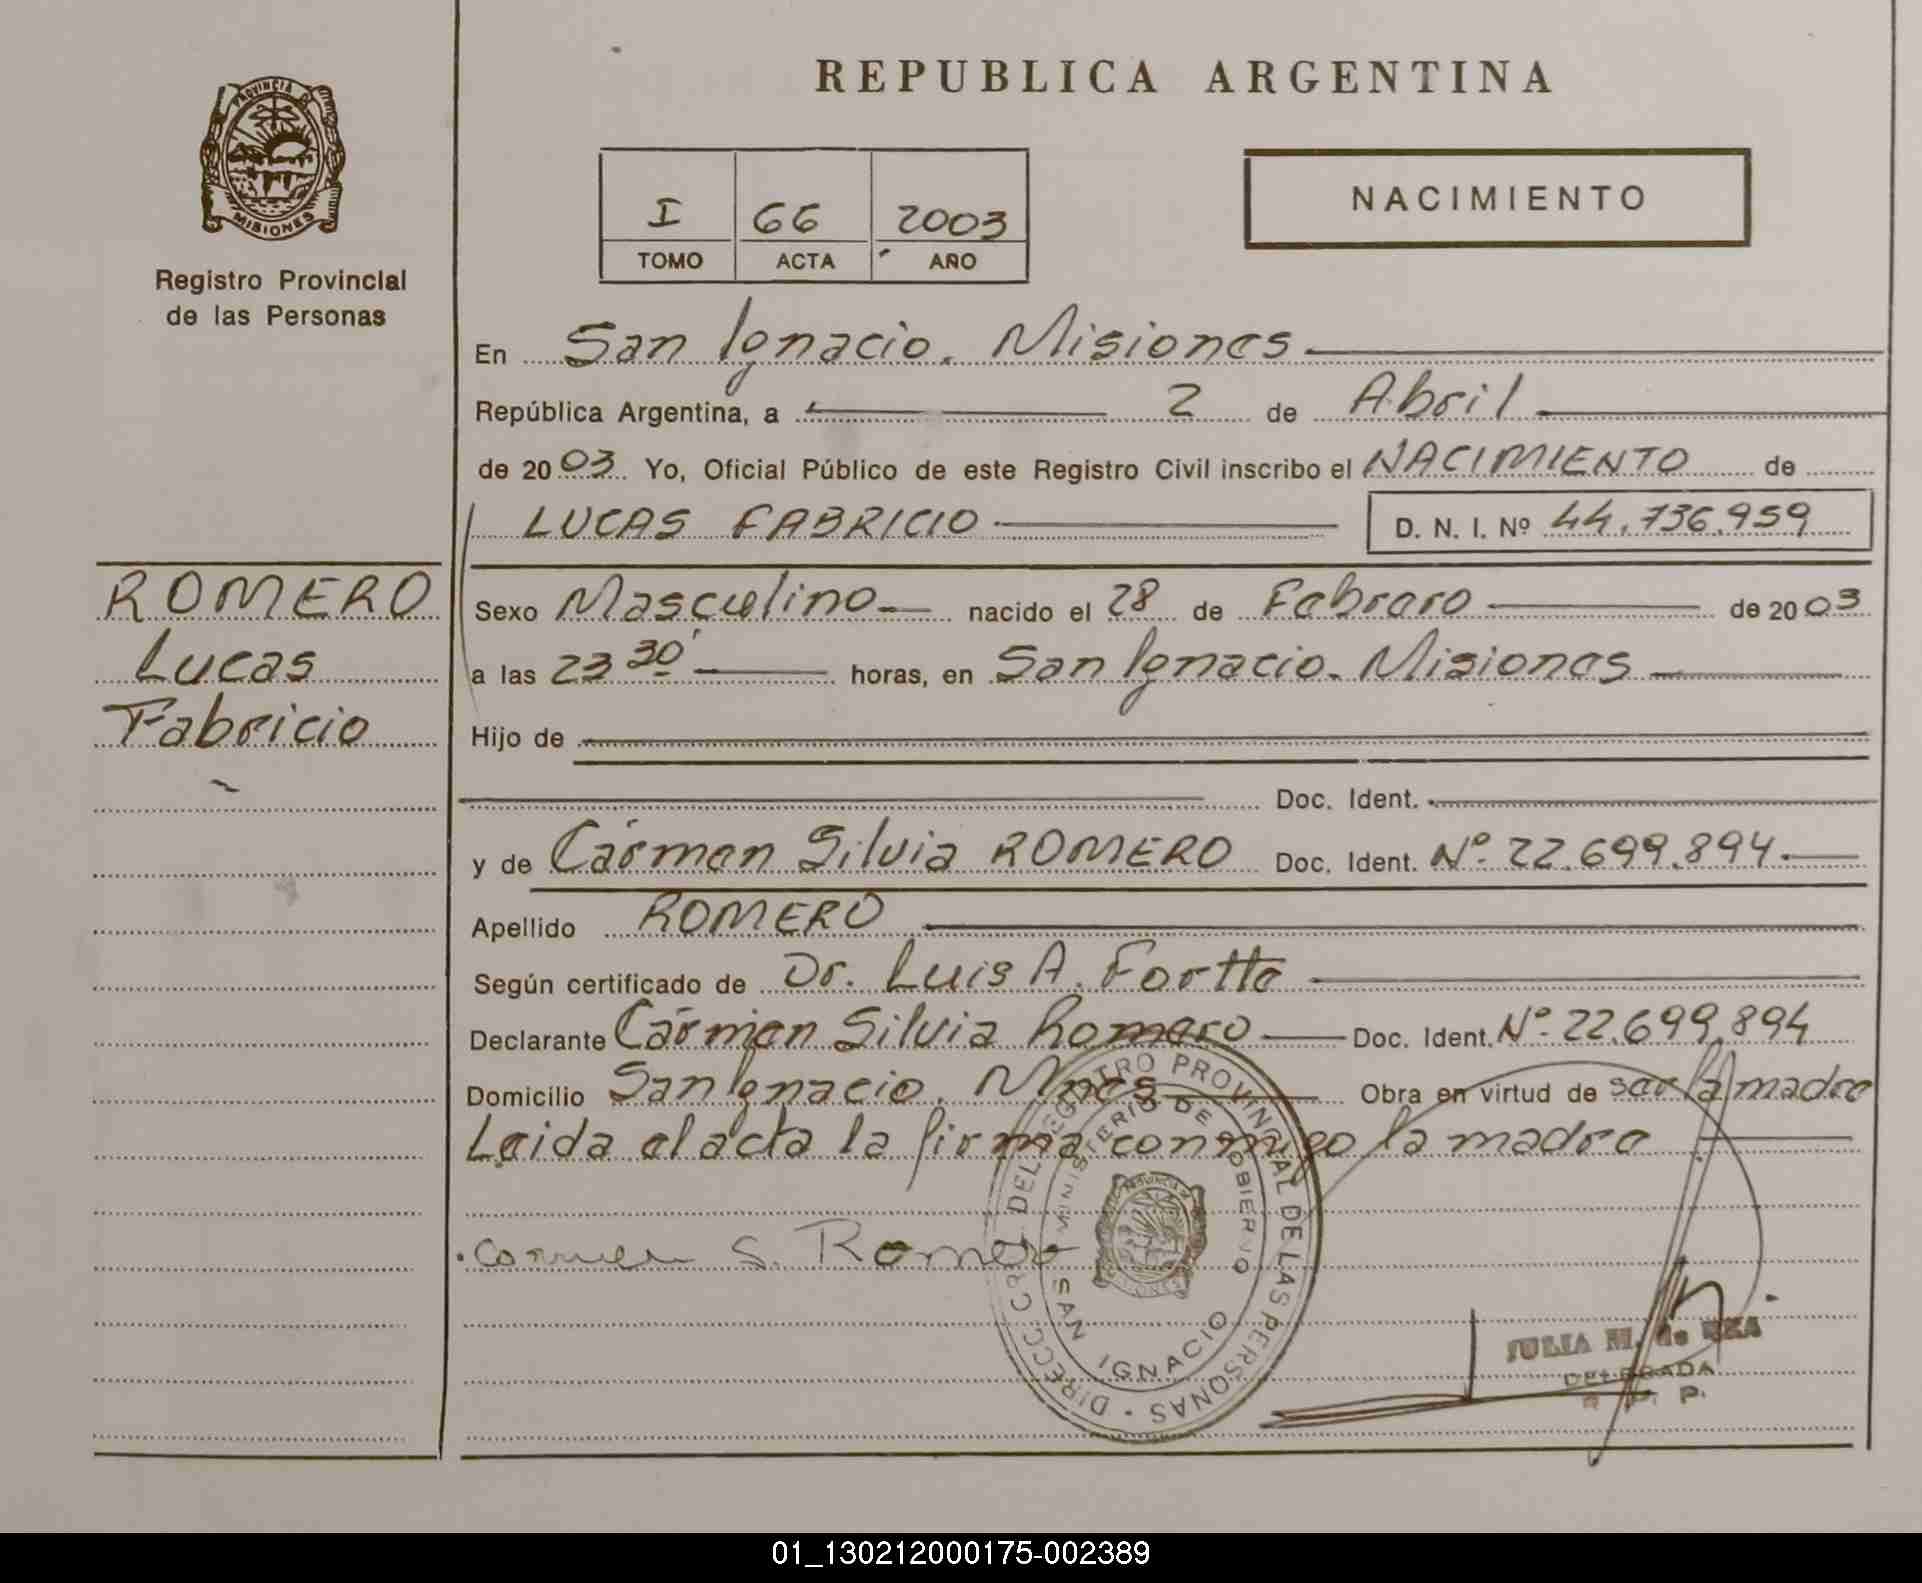 REPUBLICA ARGENTINA
PROVINCIA DE
MISIONES
Registro Provincial
de las Personas
I 66 2003
TOMO ACTA AÑO
NACIMIENTO
En San Ignacio. Misiones
República Argentina, a 2 de Abril
de 2003 Yo, Oficial Público de este Registro Civil inscribo el NACIMIENTO de
LUCAS FABRICIO D. N. I. Nº 44.736.959
ROMERO
Lucas
Fabricio
Sexo Masculino nacido el 28 de Febrero de 2003
a las 23 30' horas, en San Ignacio. Misiones
Hijo de
Doc. Ident.
y de Cármen Silvia ROMERO Doc. Ident. Nº 22.699.894.
Apellido ROMERO
Según certificado de Dr. Luis A.
Declarante Cármen Silvia Romero Doc. Ident. Nº 22.699.894
Domicilio San Ignacio. Mnes Obra en virtud de ser la madre
Leida el acta la firma conmigo la madre
Carmen S. Romero
DIRECC. GRAL. DEL REGISTRO PROVINCIAL DE LAS PERSONAS
MINISTERIO DE GOBIERNO
SAN IGNACIO
JULIA M. de
DELEGADA
R. P. P.
01_130212000175-002389